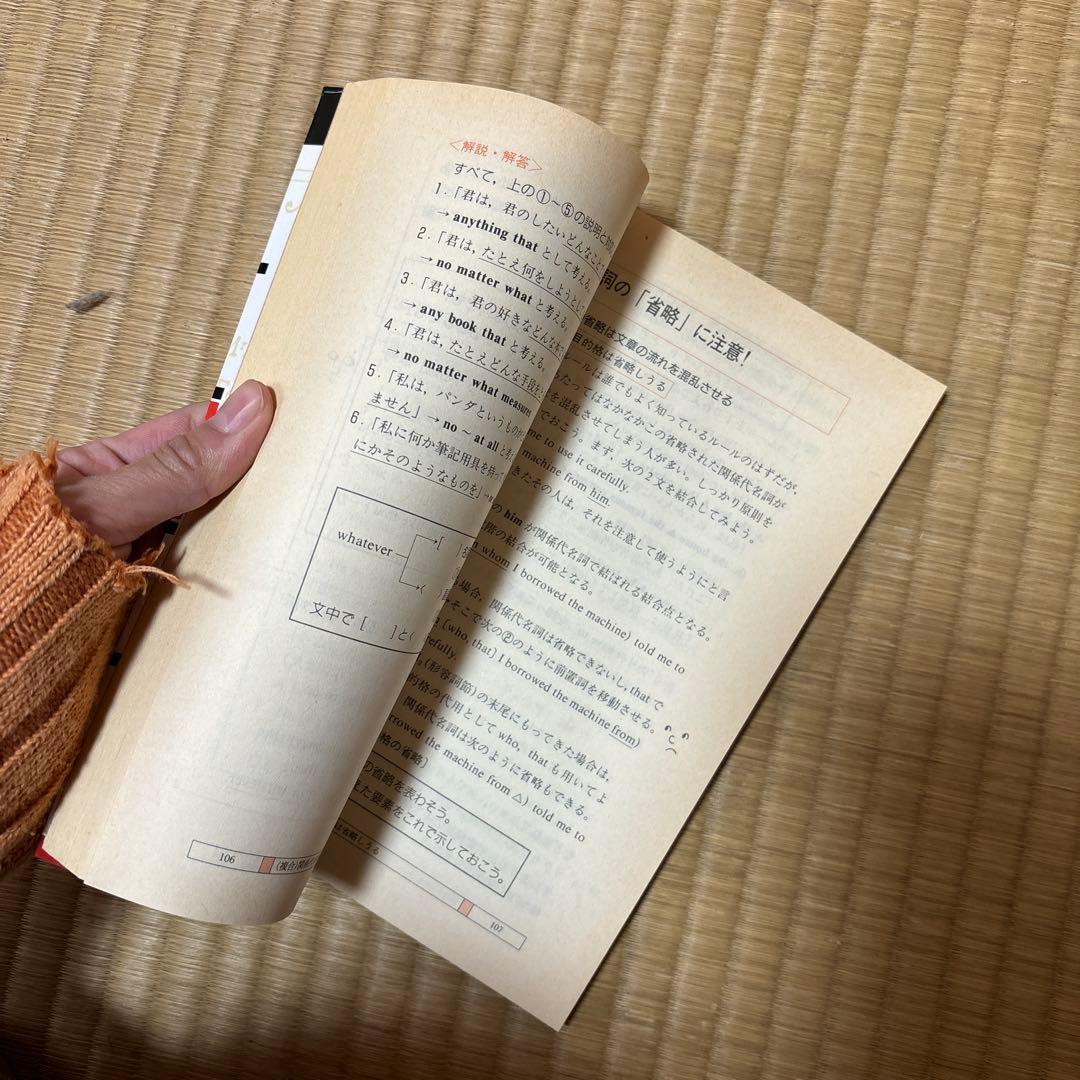 〈解説・解答〉
すべて，上の①〜⑤の説明と対
1．「君は，君のしたいどんなこと
→ anything that として考える。
2．「君は，たとえ何をしようとし
→ no matter what と考える。
3．「君は，君の好きなどんな本
→ any book that と考える。
4．「君は，たとえどんな手段を
→ no matter what measures
5．「私は，パンダというもの
ません」→ no ～ at all と考
6．「私に何か筆記用具を持っ
にかそのようなものを」→
whatever
→[
→(
文中で [ ] と (
106
(複合)関係
詞の「省略」に注意！
省略は文章の流れを混乱させる
目的格は省略しうる
ルールは誰でもよく知っているルールのはずだが，
たってはなかなかこの省略された関係代名詞が
を混乱させてしまう人が多い。しっかり原則を
でおこう。まず，次の2文を結合してみよう。
me to use it carefully.
machine from him.
きたその人は，それを注意して使うようにと言
の him が関係代名詞で結ばれる結合点となる。
階の結合が可能となる。
m whom I borrowed the machine) told me to
る場合，関係代名詞は省略できないし, that で
そこで次の②のように前置詞を移動させる。
[who, that] I borrowed the machine from)
efully.
(形容詞節) の末尾にもってきた場合は，
的格の代用として who, that も用いてよ
関係代名詞は次のように省略もできる。
rrowed the machine from △) told me to
格の省略]
の省略を表わそう。
えた要素をこれで示しておこう。
は省略しうる
107